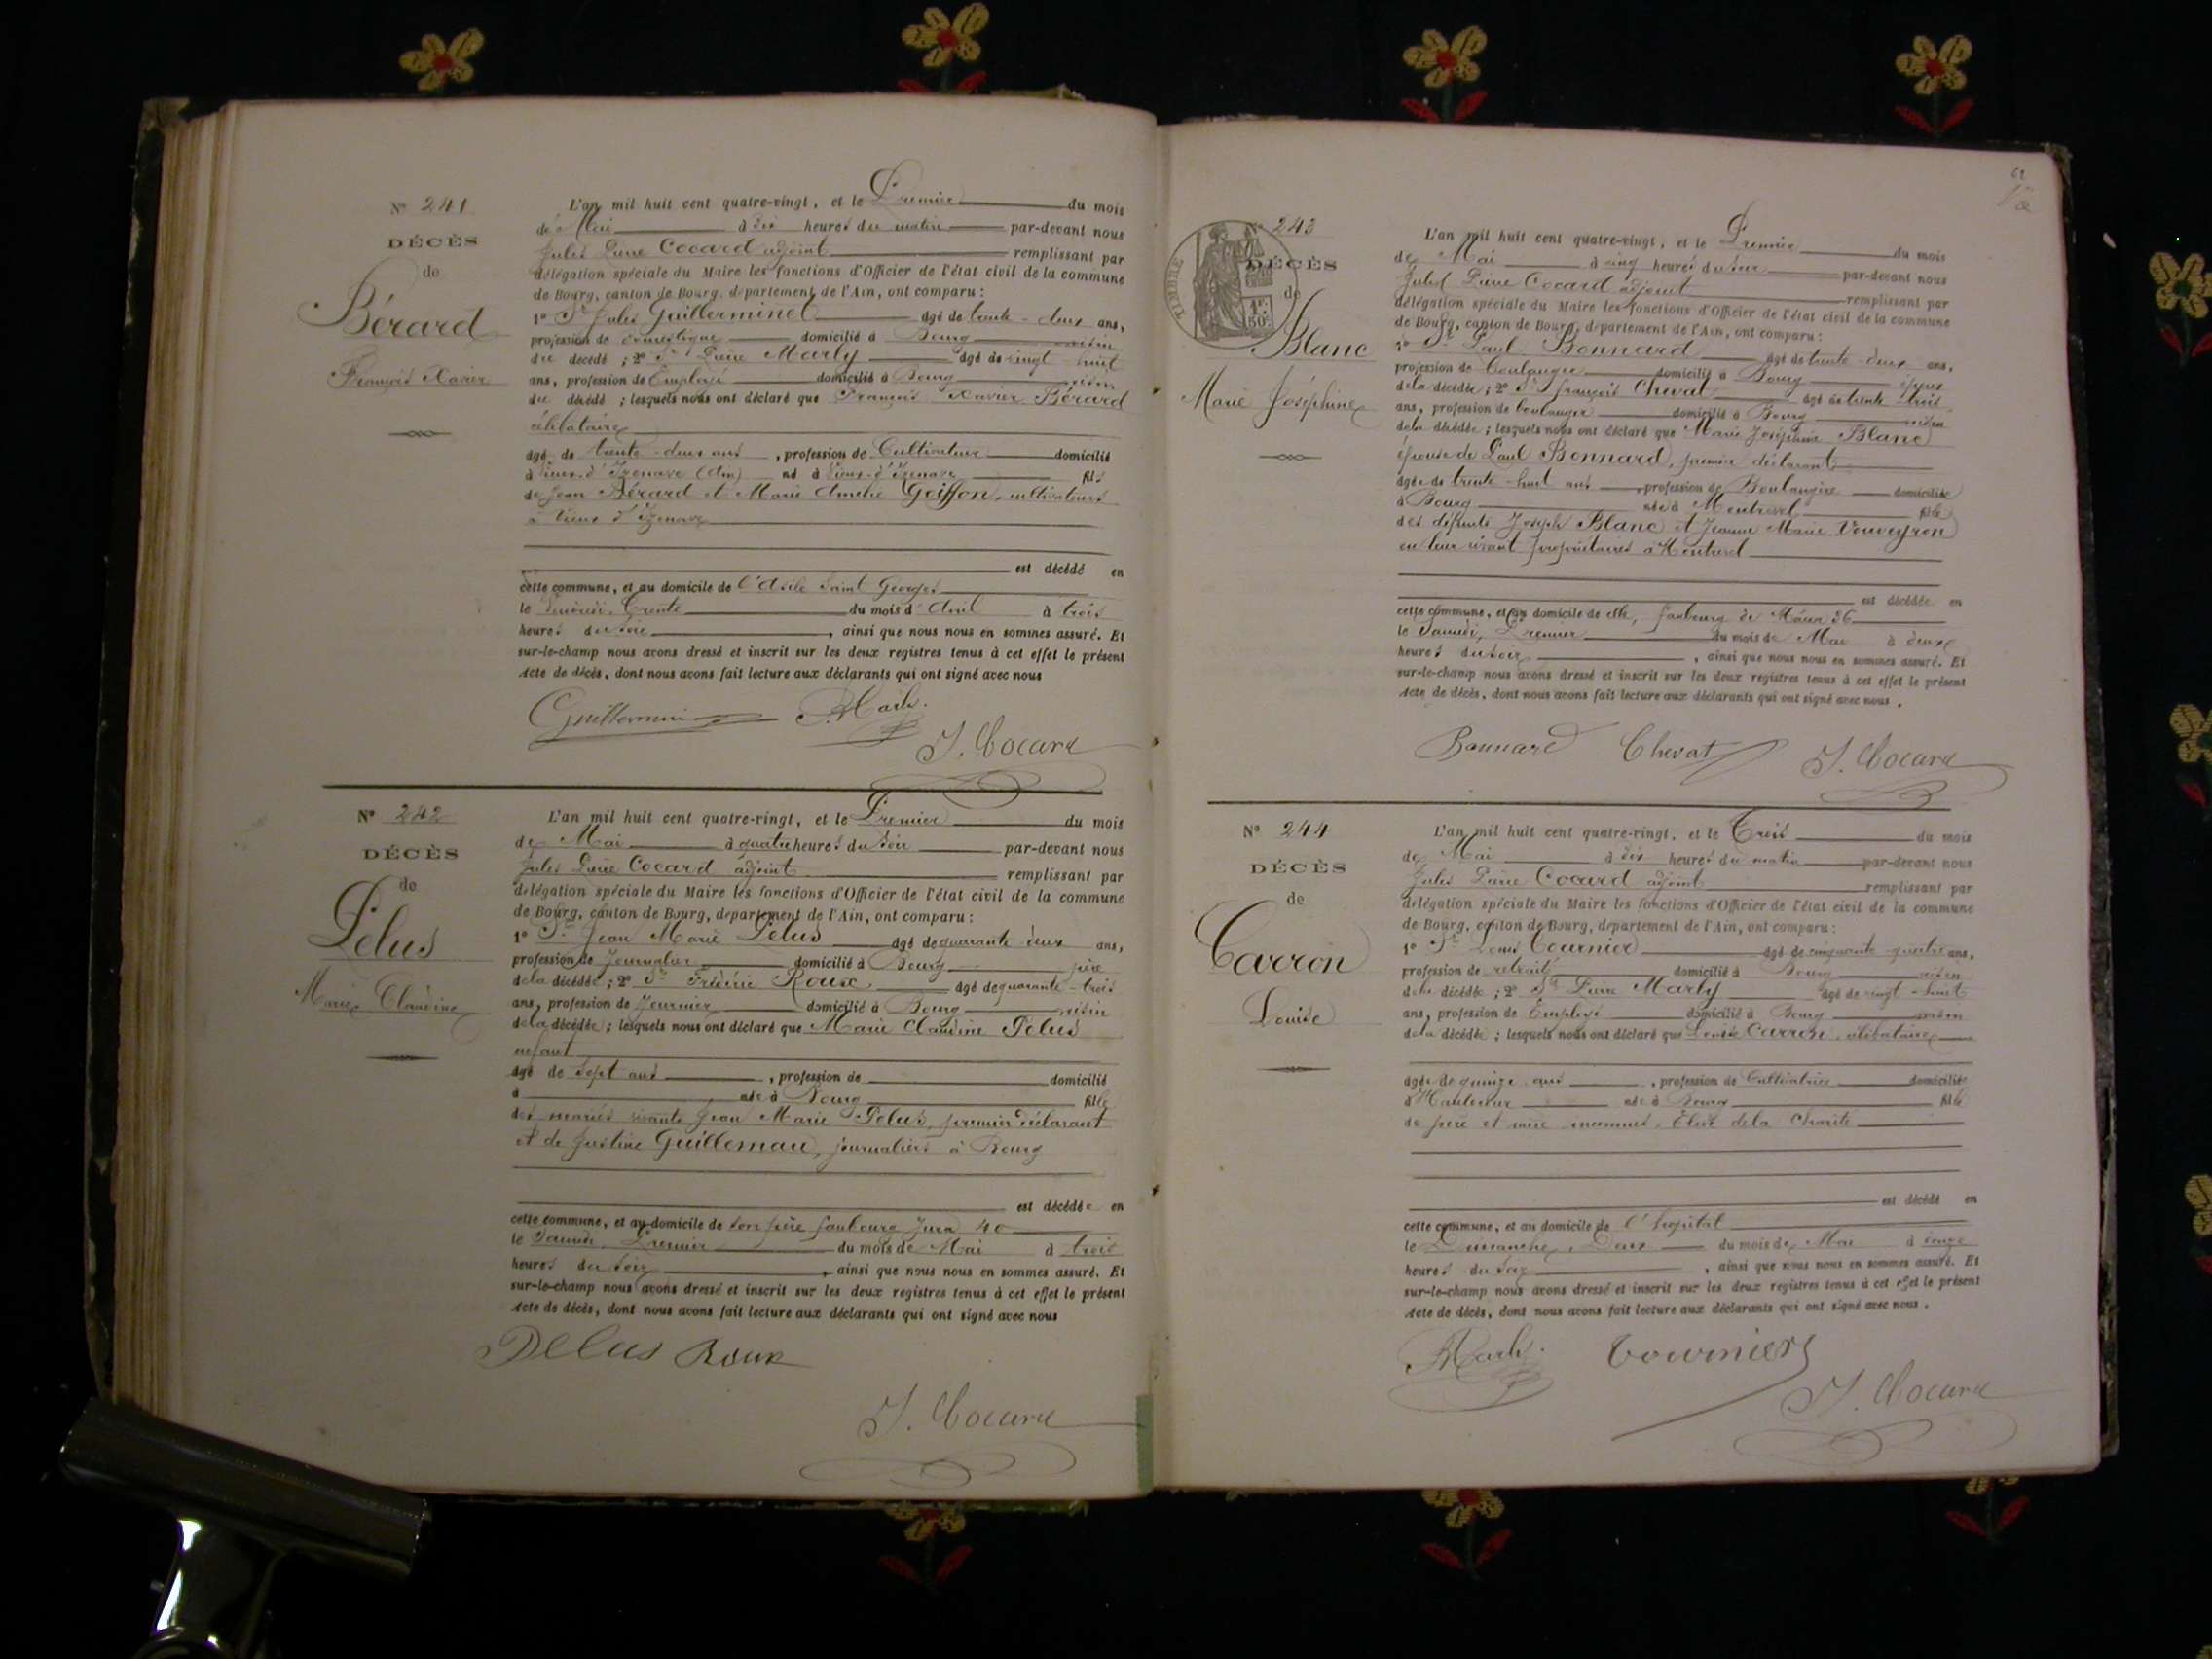 N° 241
DÉCÈS
de
Bérard
François Xavier
L'an mil huit cent quatre-vingt, et le Premier du mois
de Mai à dix heures du matin par-devant nous
Jules Pierre Cocard adjoint remplissant par
délégation spéciale du Maire les fonctions d'Officier de l'état civil de la commune
de Bourg, canton de Bourg, département de l'Ain, ont comparu :
1° Sr Jules Guillerminet agé de trente-deux ans,
profession de domestique domicilié à Bourg voisin
du décédé ; 2° Sr Pierre Marly agé de vingt-huit
ans, profession de Employé domicilié à Bourg voisin
du décédé ; lesquels nous ont déclaré que François Xavier Bérard
célibataire
agé de trente-deux ans, profession de Cultivateur domicilié
à Vieux-d'Izenave (Ain) né à Vieux-d'Izenave fils
de Jean Bérard et Marie Goiffon, cultivateurs
à Vieux d'Izenave
est décédé en
cette commune, et au domicile de l'Asile Saint Georges
le Vendredi, Trente du mois d'Avril à trois
heures du soir, ainsi que nous nous en sommes assuré. Et
sur-le-champ nous avons dressé et inscrit sur les deux registres tenus à cet effet le présent
Acte de décès, dont nous avons fait lecture aux déclarants qui ont signé avec nous
J. Cocard
N° 242
DÉCÈS
de
Pelus
Marie Claudine
L'an mil huit cent quatre-vingt, et le Premier du mois
de Mai à quatre heures du soir par-devant nous
Jules Pierre Cocard adjoint remplissant par
délégation spéciale du Maire les fonctions d'Officier de l'état civil de la commune
de Bourg, canton de Bourg, département de l'Ain, ont comparu :
1° Sr Jean Marie Pelus agé de quarante deux ans,
profession de Journalier domicilié à Bourg père
de la décédée ; 2° Sr Frédéric Roux agé de quarante-trois
ans, profession de domicilié à Bourg voisin
de la décédée ; lesquels nous ont déclaré que Marie Claudine Pelus
enfant
agé de sept ans, profession de domicilié
à née à Bourg fille
des mariés vivants Jean Marie Pelus, premier déclarant
et de Justine Guillemau, journaliers à Bourg
est décédée en
cette commune, et au domicile de son père faubourg Jura 40
le Samedi, Premier du mois de Mai à trois
heures du soir, ainsi que nous nous en sommes assuré. Et
sur-le-champ nous avons dressé et inscrit sur les deux registres tenus à cet effet le présent
Acte de décès, dont nous avons fait lecture aux déclarants qui ont signé avec nous
Pelus Roux
J. Cocard
62
N° 243
TIMBRE
1F.
50c.
DÉCÈS
de
Blanc
Marie Joséphine
L'an mil huit cent quatre-vingt, et le Premier du mois
de Mai à cinq heures du soir par-devant nous
Jules Pierre Cocard adjoint remplissant par
délégation spéciale du Maire les fonctions d'Officier de l'état civil de la commune
de Bourg, canton de Bourg, département de l'Ain, ont comparu :
1° Sr Paul Bonnard agé de trente-deux ans,
profession de boulanger domicilié à Bourg époux
de la décédée ; 2° Sr François Chevat agé de trente-trois
ans, profession de boulanger domicilié à Bourg voisin
de la décédée ; lesquels nous ont déclaré que Marie Joséphine Blanc
épouse de Paul Bonnard, premier déclarant
agée de trente-huit ans, profession de Boulangère domiciliée
à Bourg née à Montrevel fille
des défunts Joseph Blanc et Jeanne Marie Vouveyron
en leur vivant propriétaires à Montrevel
est décédée en
cette commune, et au domicile de elle, faubourg de Mâcon 36
le Samedi, Premier du mois de Mai à deux
heures du soir, ainsi que nous nous en sommes assuré. Et
sur-le-champ nous avons dressé et inscrit sur les deux registres tenus à cet effet le présent
Acte de décès, dont nous avons fait lecture aux déclarants qui ont signé avec nous.
Bonnard Chevat J. Cocard
N° 244
DÉCÈS
de
Carron
Louise
L'an mil huit cent quatre-vingt, et le Trois du mois
de Mai à dix heures du matin par-devant nous
Jules Pierre Cocard adjoint remplissant par
délégation spéciale du Maire les fonctions d'Officier de l'état civil de la commune
de Bourg, canton de Bourg, département de l'Ain, ont comparu :
1° Sr Louis Tournier agé de cinquante-quatre ans,
profession de retraité domicilié à Bourg voisin
de la décédée ; 2° Sr Pierre Marly agé de vingt-huit
ans, profession de Employé domicilié à Bourg voisin
de la décédée ; lesquels nous ont déclaré que Louise Carron, célibataire
agée de quinze ans, profession de Cultivatrice domiciliée
à née à Bourg fille
de père et mère inconnus, Elève de la Charité
est décédé en
cette commune, et au domicile de l'hôpital
le Dimanche, Deux du mois de Mai à
heures du soir, ainsi que nous nous en sommes assuré. Et
sur-le-champ nous avons dressé et inscrit sur les deux registres tenus à cet effet le présent
Acte de décès, dont nous avons fait lecture aux déclarants qui ont signé avec nous.
Tournier
J. Cocard